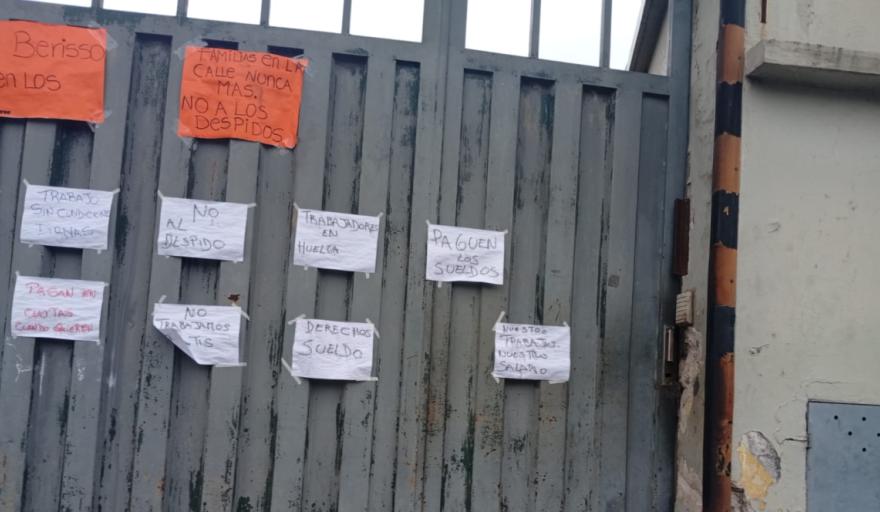 Berisso
en los
FAMILIAS EN LA
CALLE NUNCA
MAS.
NO A LOS
DESPIDOS
TRABAJO
SIN CONDICIONES
DIGNAS
NO
AL
DESPIDO
TRABAJADORES
EN
HUELGA
PAGUEN
LOS
SUELDOS
PAGAN EN
CUOTAS
CUANDO QUIEREN
NO
TRABAJAMOS
DERECHOS
SUELDO
NUESTRO
TRABAJO
NUESTRO
SALARIO